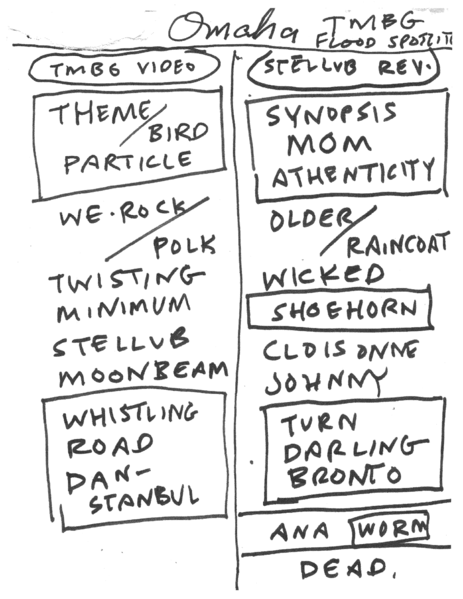 Omaha TMBG
FLOOD SPOTLITE
TMBG VIDEO
THEME/
BIRD
PARTICLE
WE·ROCK/
POLK
TWISTING
MINIMUM
STELLUB
MOONBEAM
WHISTLING
ROAD
DAN-
STANBUL
STELLUB REV.
SYNOPSIS
MOM
ATHENTICITY
OLDER/
RAINCOAT
WICKED
SHOEHORN
CLOISONNE
JOHNNY
TURN
DARLING
BRONTO
ANA WORM
DEAD.